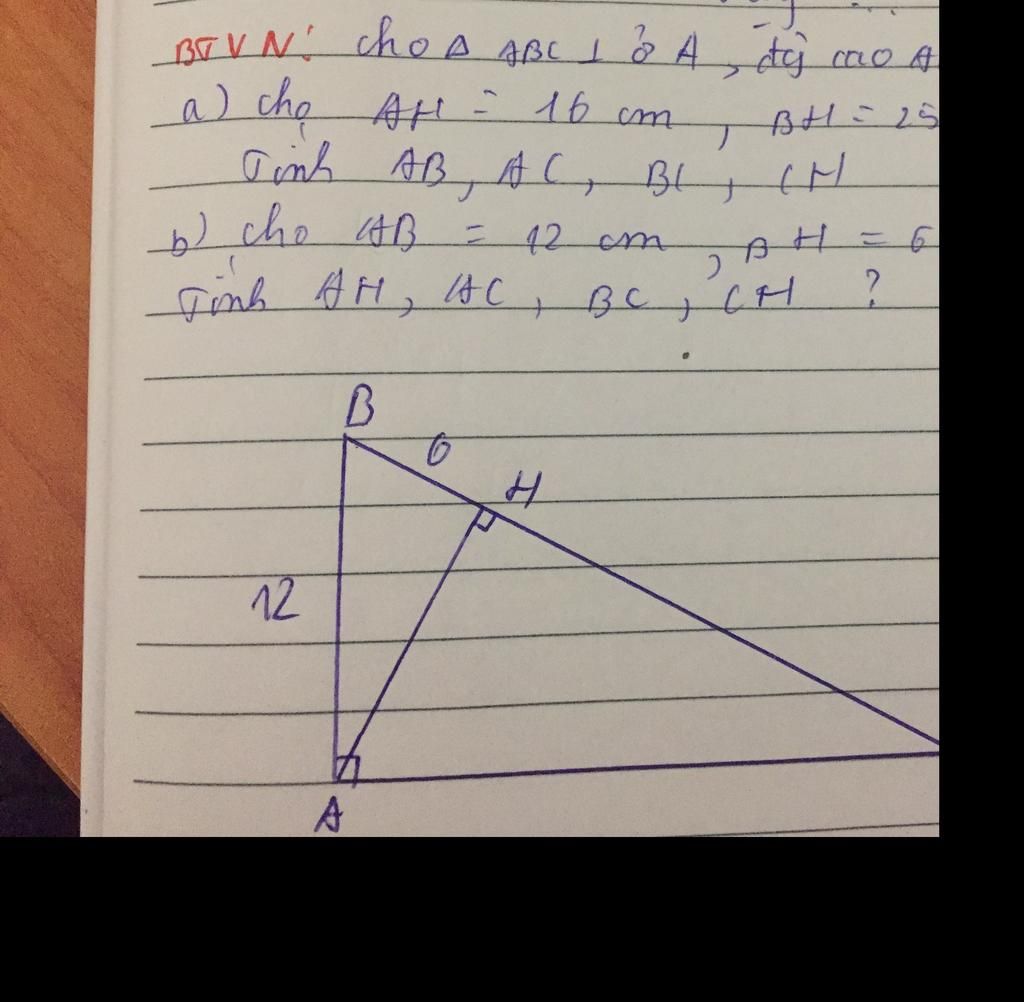 BTVN: cho Δ ABC ⊥ ở A, đg cao A
a) cho AH = 16 cm, BH = 25
Tính AB, AC, BC, CH
b) cho AB = 12 cm, BH = 6
Tính AH, AC, BC, CH ?
B
6
H
12
A